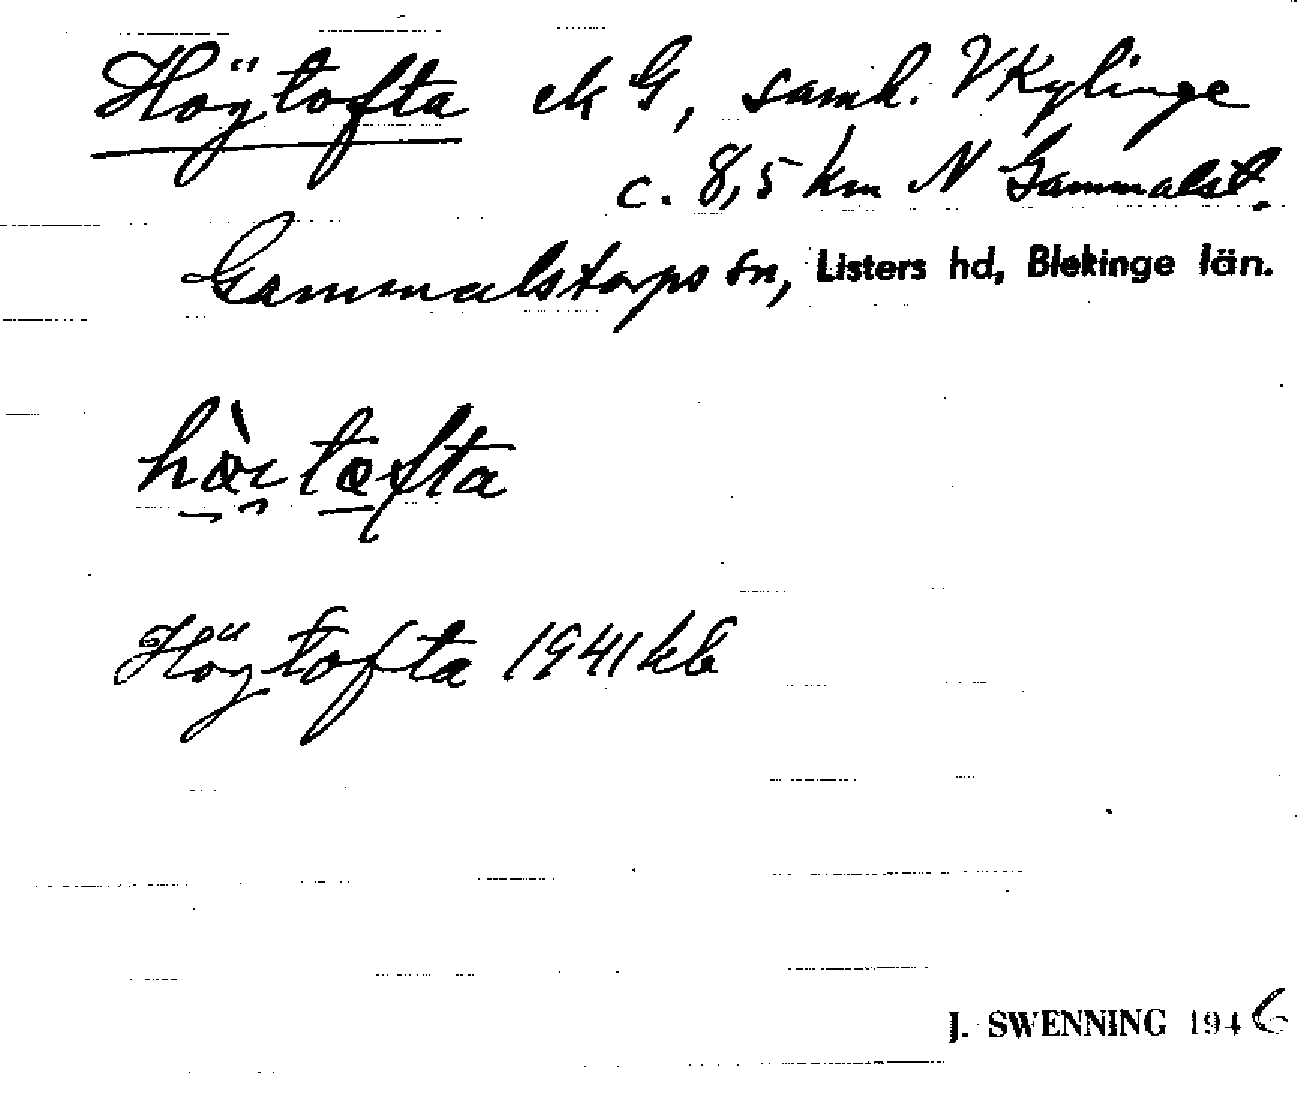 Högtofta ek G, samh. V Kylinge
c. 8,5 km N Gammalst.
Gammalstorps sn, Listers hd, Blekinge län.
hὰi tαfta
Högtofta 1941 kb
J. SWENNING 1946